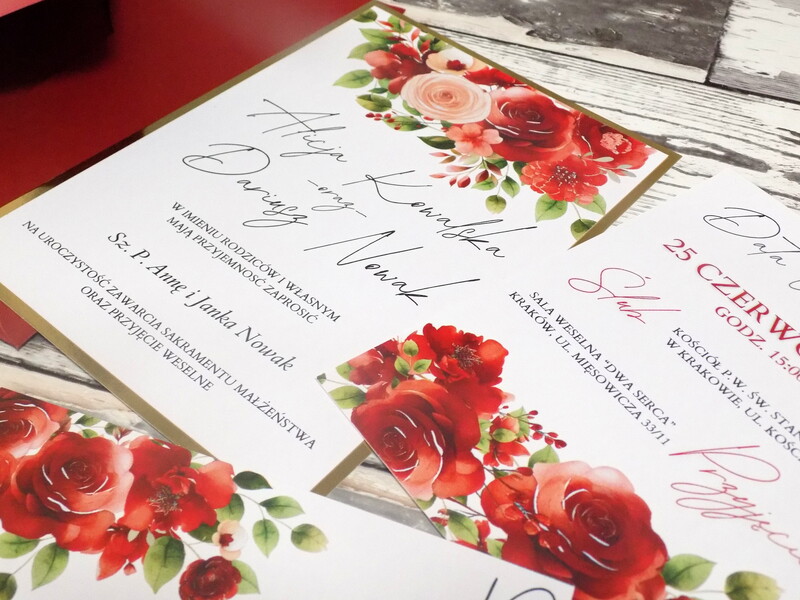 Alicja Kowalska
-oraz-
Dariusz Nowak
W IMIENIU RODZICÓW I WŁASNYM
MAJĄ PRZYJEMNOŚĆ ZAPROSIĆ
Sz. P. Annę i Janka Nowak
NA UROCZYSTOŚĆ ZAWARCIA SAKRAMENTU MAŁŻEŃSTWA
ORAZ PRZYJĘCIE WESELNE
Data
25 CZERWC
GODZ. 15:00
Ślub
KOŚCIÓŁ P.W. ŚW. STAN
W KRAKOWIE, UL. KOŚC
SALA WESELNA "DWA SERCA"
KRAKÓW, UL. MIĘSOWICZA 33/11
Przyjęci